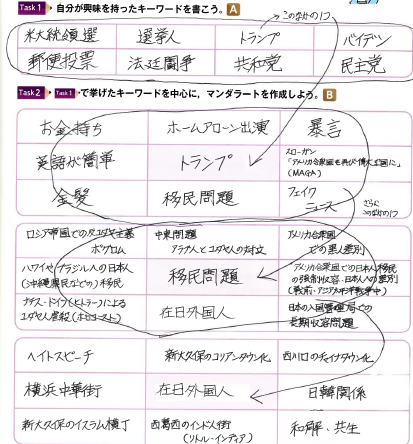 Task1 自分が興味を持ったキーワードを書こう。A
このなかの1つ
米大統領選 選挙人 トランプ バイデン
郵便投票 法廷闘争 共和党 民主党
Task2 Task1 で挙げたキーワードを中心に，マンダラートを作成しよう。B
お金持ち ホームアローン出演 暴言
英語が簡単 トランプ スローガン
「アメリカ合衆国を再び偉大な国に」
(MAGA)
金髪 移民問題 フェイク
ニュース
さらに
このなかの1つ
ロシア帝国での反ユダヤ主義
ポグロム
中東問題
アラブ人とユダヤ人の対立
アメリカ合衆国
での黒人差別
ハワイやブラジルへの日本人
(沖縄県民などの)移民
移民問題
アメリカ合衆国での日本人移民
の強制収容・日本人への差別
(戦前、アジア太平洋戦争中)
ナチス・ドイツ(ヒトラー)による
ユダヤ人虐殺(ホロコースト)
在日外国人
日本の入国管理局での
長期収容問題
ヘイトスピーチ 新大久保のコリアンタウン化 西川口のチャイナタウン化
横浜中華街 在日外国人 日韓関係
新大久保のイスラム横丁 西葛西のインド人街
(リトル・インディア)
和解・共生